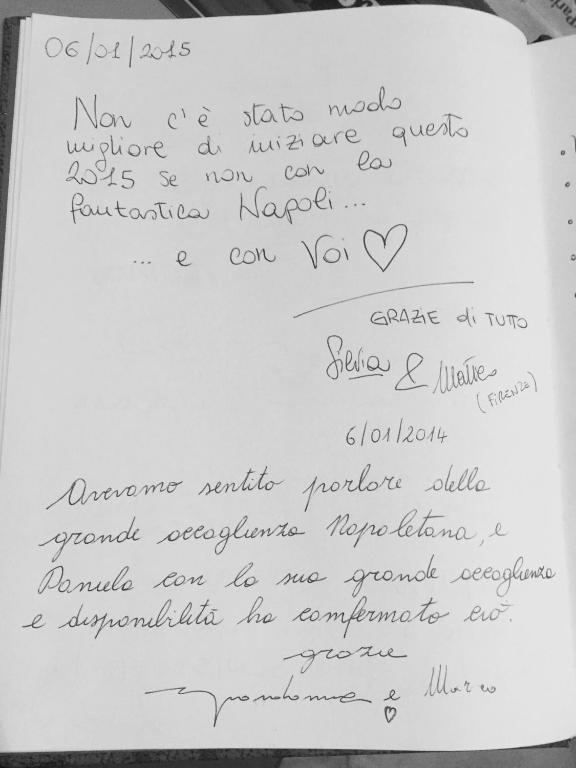 06/01/2015
Non c'è stato modo
migliore di iniziare questo
2015 se non con la
fantastica Napoli...
... e con Voi ♡
GRAZIE di TUTTO
Silvia & Matteo
(FIRENZE)
6/01/2014
Avevamo sentito parlare della
grande accoglienza Napoletana, e
Daniela con la sua grande accoglienza
e disponibilità ha comfermato ciò.
grazie
e Marco
♡